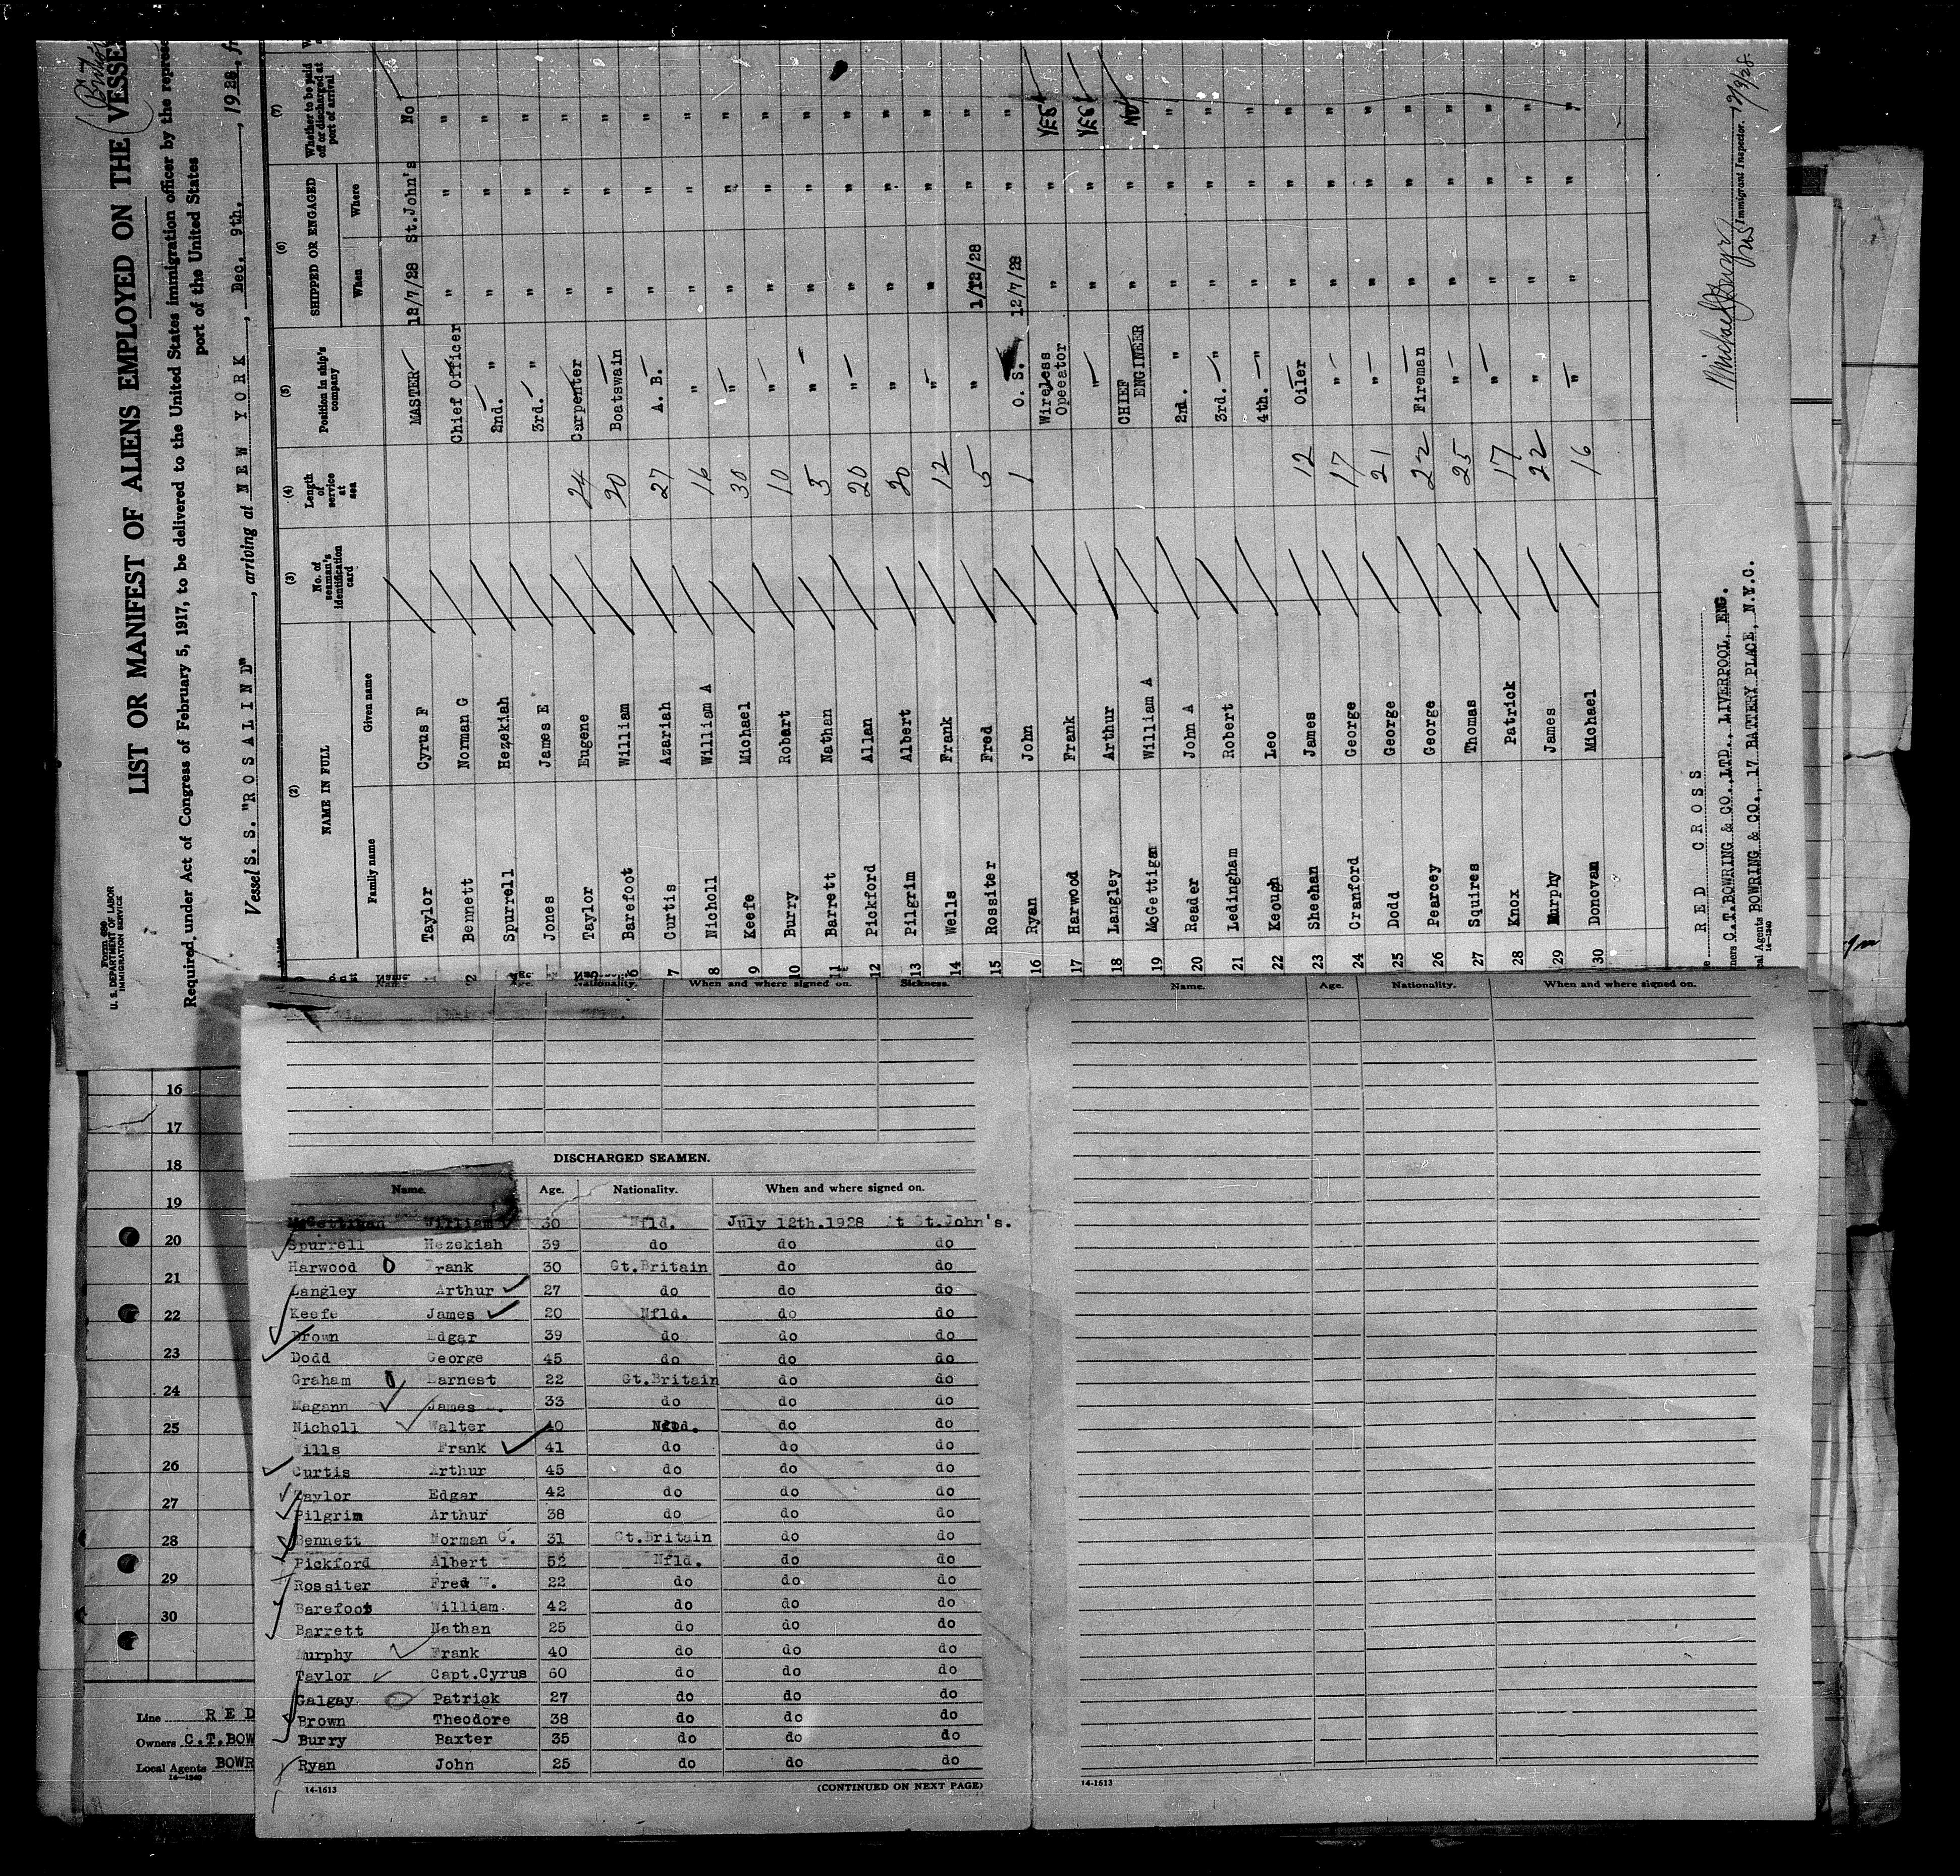 Form 680
U. S. DEPARTMENT OF LABOR
IMMIGRATION SERVICE
LIST OR MANIFEST OF ALIENS EMPLOYED ON THE VESSEL
Required under Act of Congress of February 5, 1917, to be delivered to the United States immigration officer by the
port of the United States
Vessel S. S. "ROSALIND", arriving at NEW YORK, Dec. 9th., 1928,
(2) (3) (4) (5) (6) (7)
NAME IN FULL No. of seaman's identification card Length of service at sea Position in ship's company SHIPPED OR ENGAGED Whether to be paid off or discharged at port of arrival
Family name Given name When Where
Taylor Cyrus F MASTER 12/7/28 St.John's No
2 Bennett Norman G Chief Officer " " "
Spurrell Hezekiah 2nd. " " " "
Jones James E 3rd. " " " "
5 Taylor Eugene 24 Carpenter " " "
6 Barefoot William 20 Boatswain " " "
7 Curtis Azariah 27 A. B. " " "
8 Nicholl William A 16 " " " "
9 Keefe Michael 30 " " " "
10 Burry Robart 10 " " " "
11 Barrett Nathan 5 " " " "
12 Pickford Allan 20 " " " "
13 Pilgrim Albert 20 " " " "
14 Wells Frank 12 " " " "
15 Rossiter Fred 5 " 1/12/28 " "
16 Ryan John 1 O. S. 12/7/28 " "
17 Harwood Frank Wireless Opeeator " " YES
18 Langley Arthur " " " YES
19 McGettigan William A CHIEF ENGINEER " " No
20 Reader John A 2nd. " " " "
21 Ledingham Robert 3rd. " " " "
22 Keough Leo 4th. " " " "
23 Sheehan James 12 Oiler " " "
24 Cranford George 17 " " " "
25 Dodd George 21 " " " "
26 Pearcey George 22 Fireman " " "
27 Squires Thomas 25 " " " "
28 Knox Patrick 17 " " " "
29 Murphy James 22 " " " "
30 Donovan Michael 16 " " " "
RED CROSS
C.T.BOWRING & CO.,LTD., LIVERPOOL, ENG.
Agents BOWRING & CO., 17 BATTERY PLACE, N.Y.C.
14-1240
Immigrant Inspector.
Age. Nationality. When and where signed on. Sickness.
Name. Age. Nationality. When and where signed on.
16
17
18
19
20
21
22
23
24
25
26
27
28
29
30
Line RED
Owners C.T.BOW
Local Agents BOWR
14-1240
DISCHARGED SEAMEN.
Name. Age. Nationality. When and where signed on.
McGettigan William 30 Nfld. July 12th.1928 At St.John's.
Spurrell Hezekiah 39 do do do
Harwood Frank 30 Gt.Britain do do
Langley Arthur 27 do do do
Keefe James 20 Nfld. do do
Brown Edgar 39 do do do
Dodd George 45 do do do
Graham Earnest 22 Gt.Britain do do
Magann James 33 do do do
Nicholl Walter 40 Nfld. do do
Wills Frank 41 do do do
Curtis Arthur 45 do do do
Taylor Edgar 42 do do do
Pilgrim Arthur 38 do do do
Bennett Norman G. 31 Gt.Britain do do
Pickford Albert 52 Nfld. do do
Rossiter Fred 22 do do do
Barefoot William. 42 do do do
Barrett Nathan 25 do do do
Murphy Frank 40 do do do
Taylor Capt.Cyrus 60 do do do
Galgay Patrick 27 do do do
Brown Theodore 38 do do do
Burry Baxter 35 do do do
Ryan John 25 do do do
14-1613 (CONTINUED ON NEXT PAGE)
14-1613